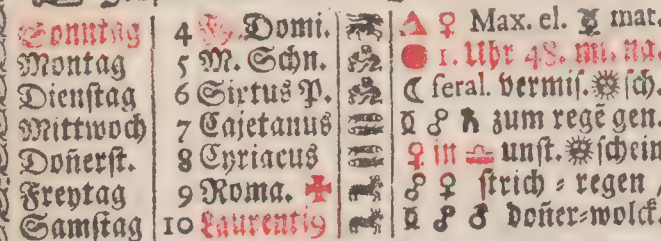 Sonntag 4 Domi. △ ♀ Max. el. ☿ mat.
Montag 5 M. Schn. 1. Uhr 48. mi. na.
Dienſtag 6 Sixtus P. ☾ feral. vermiſ. ſch.
Mittwoch 7 Cajetanus ☿ ☍ ♄ zum regē gen.
Doñerſt. 8 Cyriacus ♀ in ♎ unſt. ſchein
Freytag 9 Roma. ✠ ☍ ♀ ſtrich ⸗ regen /
Samſtag 10 Laurentiꝰ ☿ ☍ ♂ doñer⸗wolck.